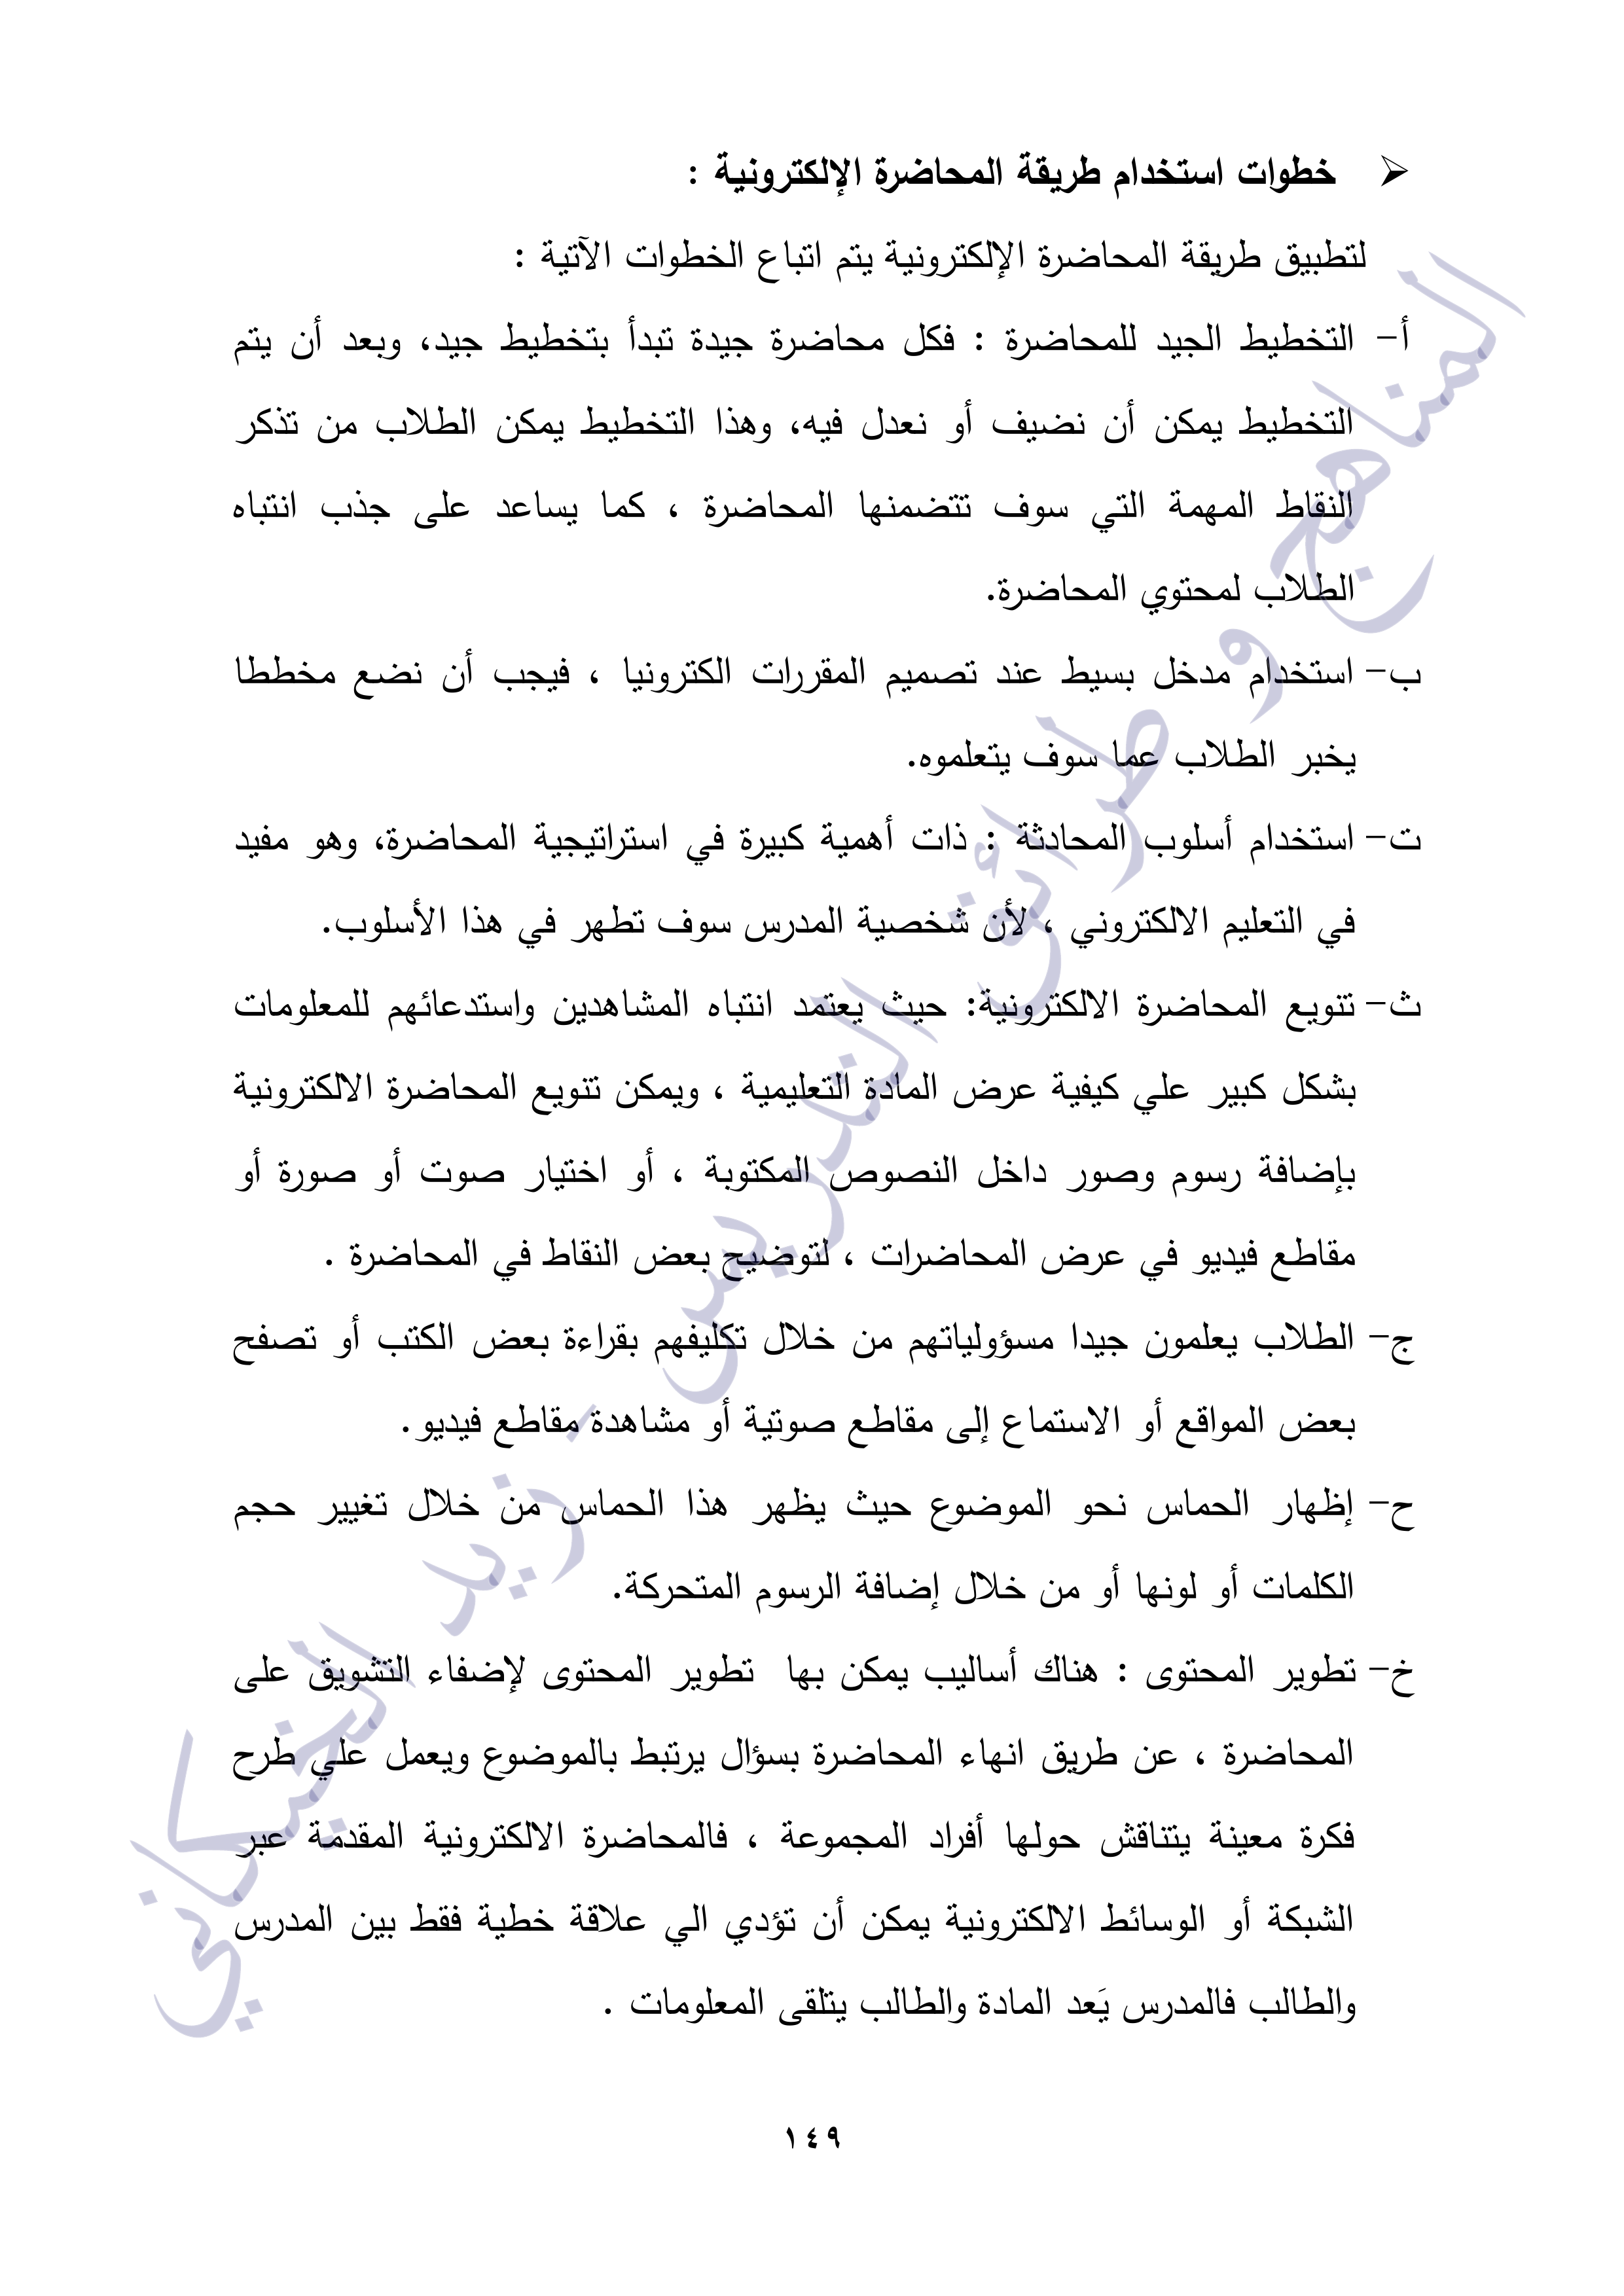 ➢ خطوات استخدام طريقة المحاضرة الإلكترونية :
لتطبيق طريقة المحاضرة الإلكترونية يتم اتباع الخطوات الآتية :
أ- التخطيط الجيد للمحاضرة : فكل محاضرة جيدة تبدأ بتخطيط جيد، وبعد أن يتم
التخطيط يمكن أن نضيف أو نعدل فيه، وهذا التخطيط يمكن الطلاب من تذكر
النقاط المهمة التي سوف تتضمنها المحاضرة ، كما يساعد على جذب انتباه
الطلاب لمحتوي المحاضرة.
ب- استخدام مدخل بسيط عند تصميم المقررات الكترونيا ، فيجب أن نضع مخططا
يخبر الطلاب عما سوف يتعلموه.
ت- استخدام أسلوب المحادثة : ذات أهمية كبيرة في استراتيجية المحاضرة، وهو مفيد
في التعليم الالكتروني ، لأن شخصية المدرس سوف تطهر في هذا الأسلوب.
ث- تتويع المحاضرة الالكترونية: حيث يعتمد انتباه المشاهدين واستدعائهم للمعلومات
بشكل كبير علي كيفية عرض المادة التعليمية ، ويمكن تتويع المحاضرة الالكترونية
بإضافة رسوم وصور داخل النصوص المكتوبة ، أو اختيار صوت أو صورة أو
مقاطع فيديو في عرض المحاضرات ، لتوضيح بعض النقاط في المحاضرة .
ج- الطلاب يعلمون جيدا مسؤولياتهم من خلال تكليفهم بقراءة بعض الكتب أو تصفح
بعض المواقع أو الاستماع إلى مقاطع صوتية أو مشاهدة مقاطع فيديو.
ح- إظهار الحماس نحو الموضوع حيث يظهر هذا الحماس من خلال تغيير حجم
الكلمات أو لونها أو من خلال إضافة الرسوم المتحركة.
خ- تطوير المحتوى : هناك أساليب يمكن بها تطوير المحتوى لإضفاء التشويق على
المحاضرة ، عن طريق انهاء المحاضرة بسؤال يرتبط بالموضوع ويعمل علي طرح
فكرة معينة يتناقش حولها أفراد المجموعة ، فالمحاضرة الالكترونية المقدمة عبر
الشبكة أو الوسائط الالكترونية يمكن أن تؤدي الي علاقة خطية فقط بين المدرس
والطالب فالمدرس يَعد المادة والطالب يتلقى المعلومات .
١٤٩
المناهج و طرائق التدريس - زيد الخيكاني